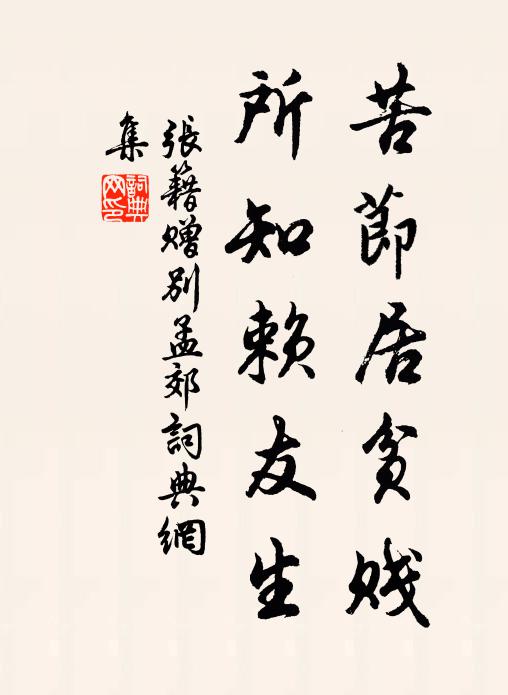 苦節居貧賤
所知賴友生
張籍贈別孟郊詞典網
集
詞典
网印